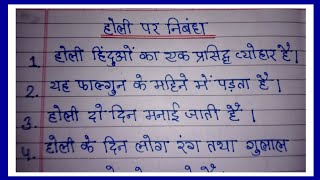 होली पर निबंध
1. होली हिंदुओं का एक प्रसिद्ध त्योहार है।
2. यह फाल्गुन के महिने में पड़ता है।
3. होली दो दिन मनाई जाती है।
4. होली के दिन लोग रंग तथा गुलाल